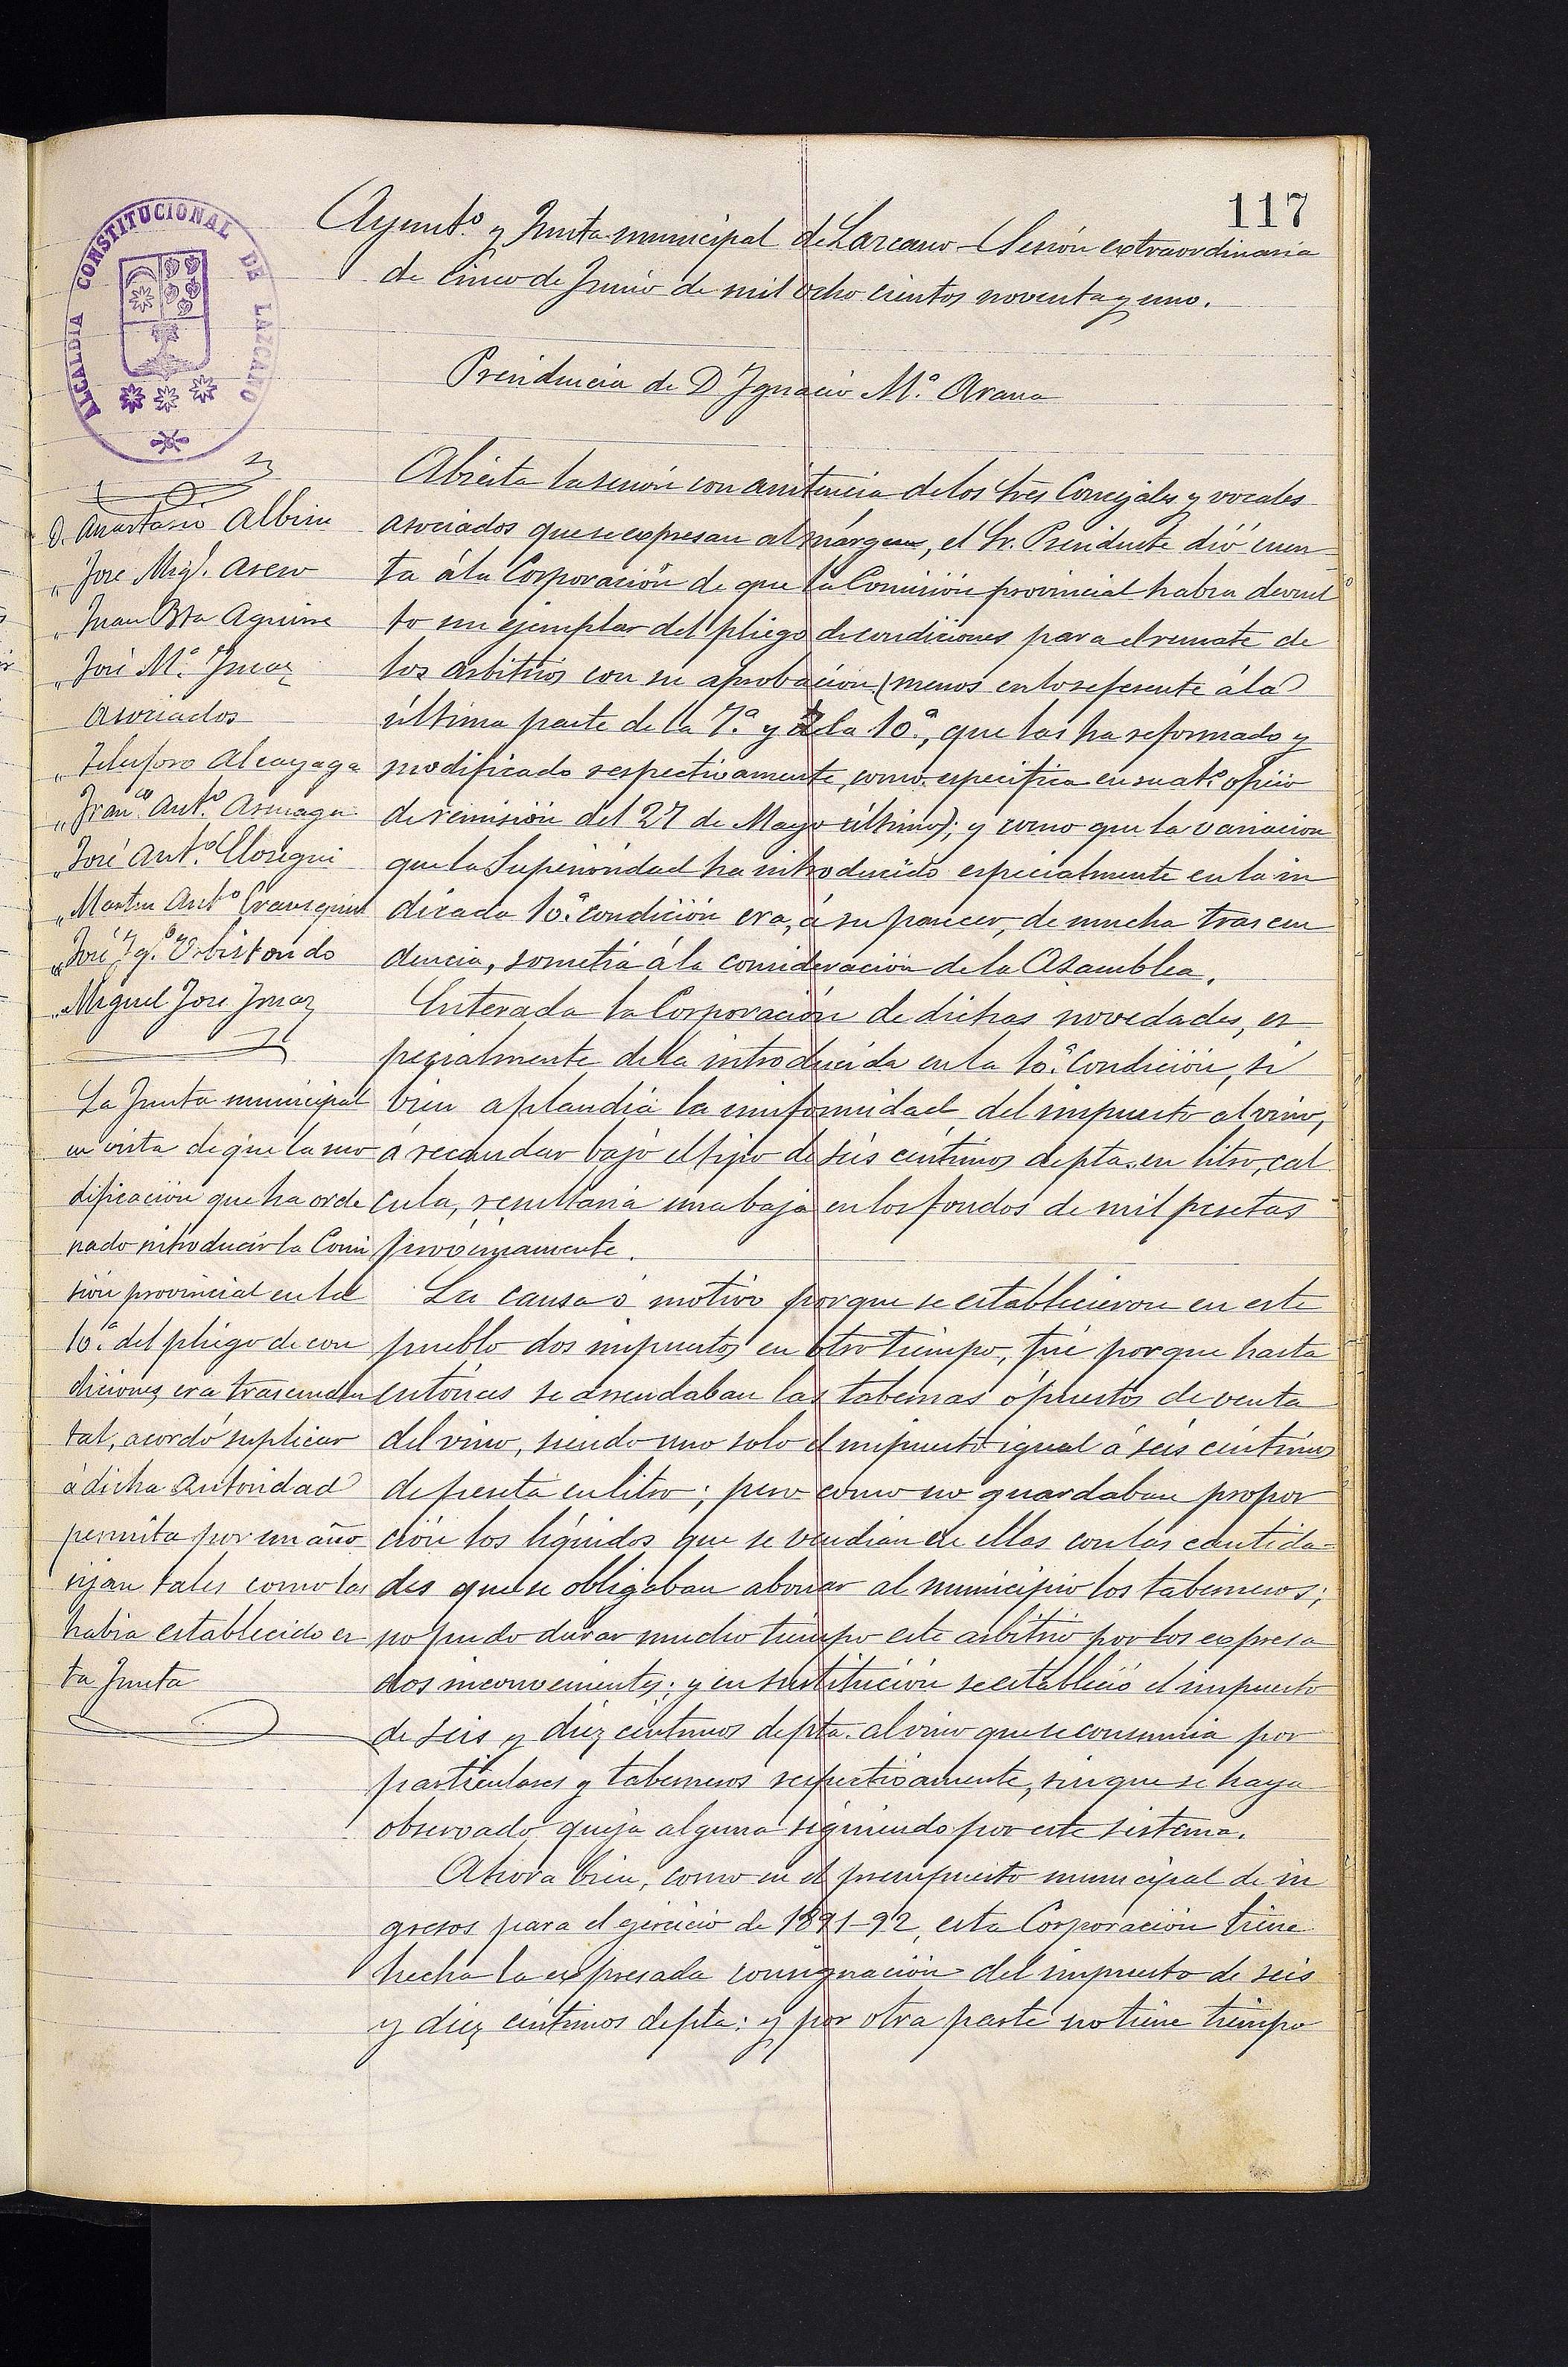 117
ALCALDIA CONSTITUCIONAL DE LAZCANO
Ayunt.º y Junta municipal de Lazcano - Sesión extraordinaria
de cinco de Junio de mil ocho cientos noventa y uno.
Presidencia de D Ignacio M.ª Arana
D. Anastasio Albisu
" Jose Mig.l Aseso
" Juan Bta Aguirre
" José M.ª Imaz
Asociados
" Telesforo Alcayaga
" Fran.co Ant.º
" José Ant.º
" Martin Ant.º
" José Ig.º Urbiztondo
" Miguel José Imaz
La Junta municipal
en vista de que la mo
dificación que ha orde
nado introducir la Comi
sión provincial en la
10.ª del pliego de con
diciones era trascenden
tal, acordó suplicar
á dicha Autoridad
permita por un año
rijan tales como las
habia establecido es
ta Junta
Abierta la sesión con asistencia de los tres Concejales y vocales
asociados que se expresan al márgen, el Sr. Presidente dió cuen
ta á la Corporación de que la Comisión provincial habia devuel
to un ejemplar del pliego de condiciones para el remate de
los arbitrios con su aprobación (menos en lo referente á la
última parte de la 7.ª y de la 10.ª, que las ha reformado y
modificado respectivamente, como especifica en su at.º oficio
de remisión del 27 de Mayo último); y como que la variacion
que la Superioridad ha introducido especialmente en la in
dicada 10.ª condición era, á su parecer, de mucha trascen
dencia, sometia á la consideración de la Asamblea.
Enterada la Corporación de dichas novedades, es
pecialmente de la introducida en la 10.ª condición, si
bien aplaudia la uniformidad del impuesto al vino,
á recaudar bajo el tipo de seis céntimos de pta. en litro, cal
cula, resultaria una baja en los fondos de mil pesetas
proximamente.
La causa ó motivo porque se establecieron en este
pueblo dos impuestos en otro tiempo, fué porque hasta
entónces se arrendaban las tabernas ó puestos de venta
del vino, siendo uno solo el impuesto igual á seis céntimos
de peseta en litro; pero como no guardaban propor
ción los líquidos que se vendian en ellas con las cantida-
des que se obligaban abonar al municipio los taberneros;
no pudo durar mucho tiempo este arbitrio por los expresa
dos inconvenientes; y en sustitución se estableció el impuesto
de seis y diez céntimos de pta. al vino que se consumia por
particulares y taberneros respectivamente, sin que se haya
observado queja alguna siguiendo por este sistema.
Ahora bien, como en el presupuesto municipal de in
gresos para el ejercicio de 1891-92, esta Corporación tiene
hecha la expresada consignación del impuesto de seis
y diez céntimos de pta: y por otra parte no tiene tiempo